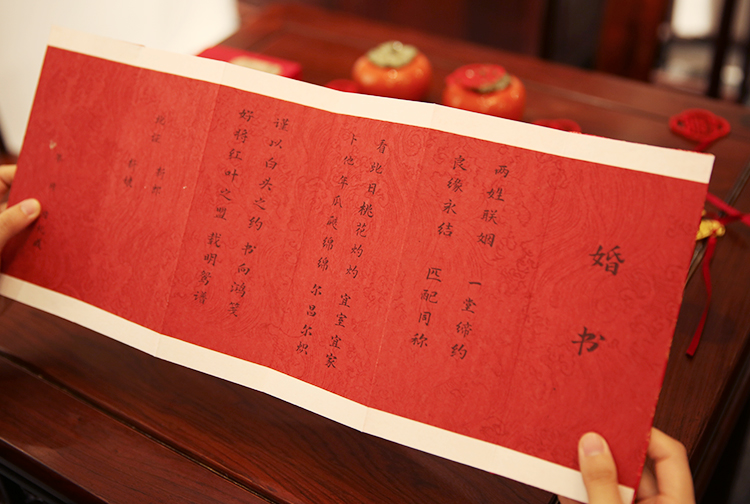 婚书
两姓联姻 一堂缔约
良缘永结 匹配同称
看此日桃花灼灼 宜室宜家
卜他年瓜瓞绵绵 尔昌尔炽
谨以白头之约 书向鸿笺
好将红叶之盟 载明鸳谱
此证 新郎
新娘